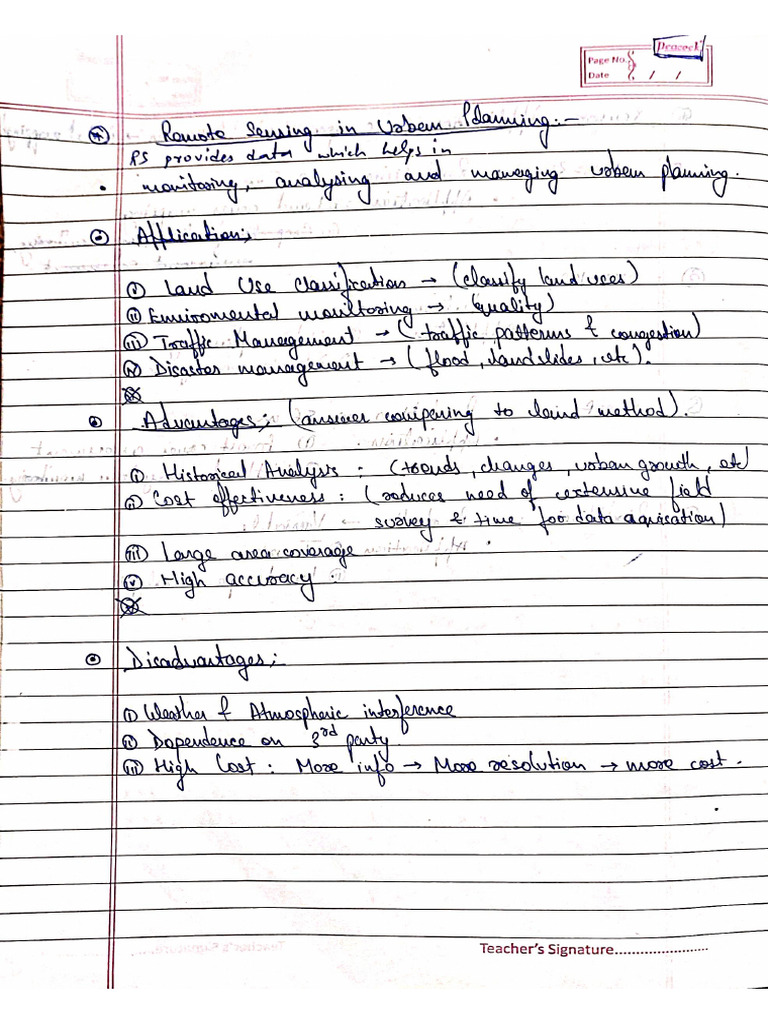 Peacock
Page No.
Date / /
Remote Sensing in Urban Planning:-
RS provides data which helps in
monitoring, analysing and managing urban planning.
Application;
(i) Land Use classification → (classify land uses)
(ii) Enviromental monitoring → (quality)
(iii) Traffic Management → (traffic patterns & congestion)
(iv) Disaster management → (flood, landslides, etc).
Advantages; (answer compering to land method).
(i) Historical Analysis : (trends, changes, urban growth, etc
(ii) Cost effectiveness : (reduces need of extensive field
survey & time for data aquisation)
(iii) Large area coverage
(iv) High accuracy.
Disadvantages;
(i) Weather & Atmospheric interference
(ii) Dependence on 3rd party.
(iii) High Cost : More info → More resolution → more cost.
Teacher's Signature........................